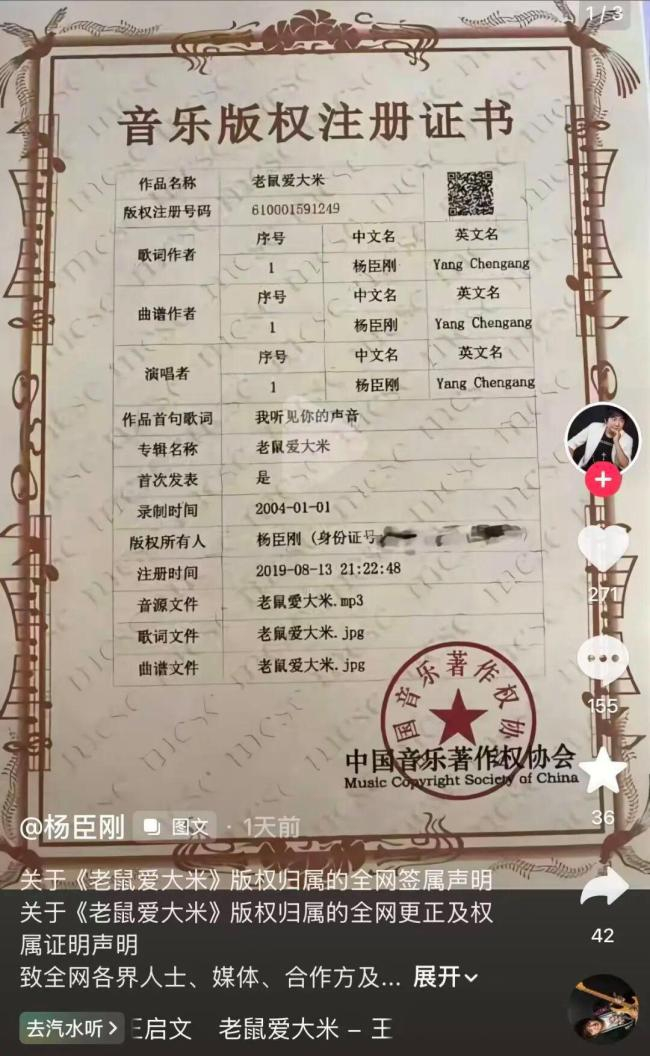 1/3
音乐版权注册证书
作品名称 老鼠爱大米
版权注册号码 610001591249
歌词作者 序号 中文名 英文名
1 杨臣刚 Yang Chengang
曲谱作者 序号 中文名 英文名
1 杨臣刚 Yang Chengang
演唱者 序号 中文名 英文名
1 杨臣刚 Yang Chengang
作品首句歌词 我听见你的声音
专辑名称 老鼠爱大米
首次发表 是
录制时间 2004-01-01
版权所有人 杨臣刚（身份证号
注册时间 2019-08-13 21:22:48
音源文件 老鼠爱大米.mp3
歌词文件 老鼠爱大米.jpg
曲谱文件 老鼠爱大米.jpg
国音乐著作权协
中国音乐著作权协会
Music Copyright Society of China
271
155
36
42
@杨臣刚 图文 · 1天前
关于《老鼠爱大米》版权归属的全网签属声明
关于《老鼠爱大米》版权归属的全网更正及权
属证明声明
致全网各界人士、媒体、合作方及... 展开
去汽水听 王启文 老鼠爱大米 – 王